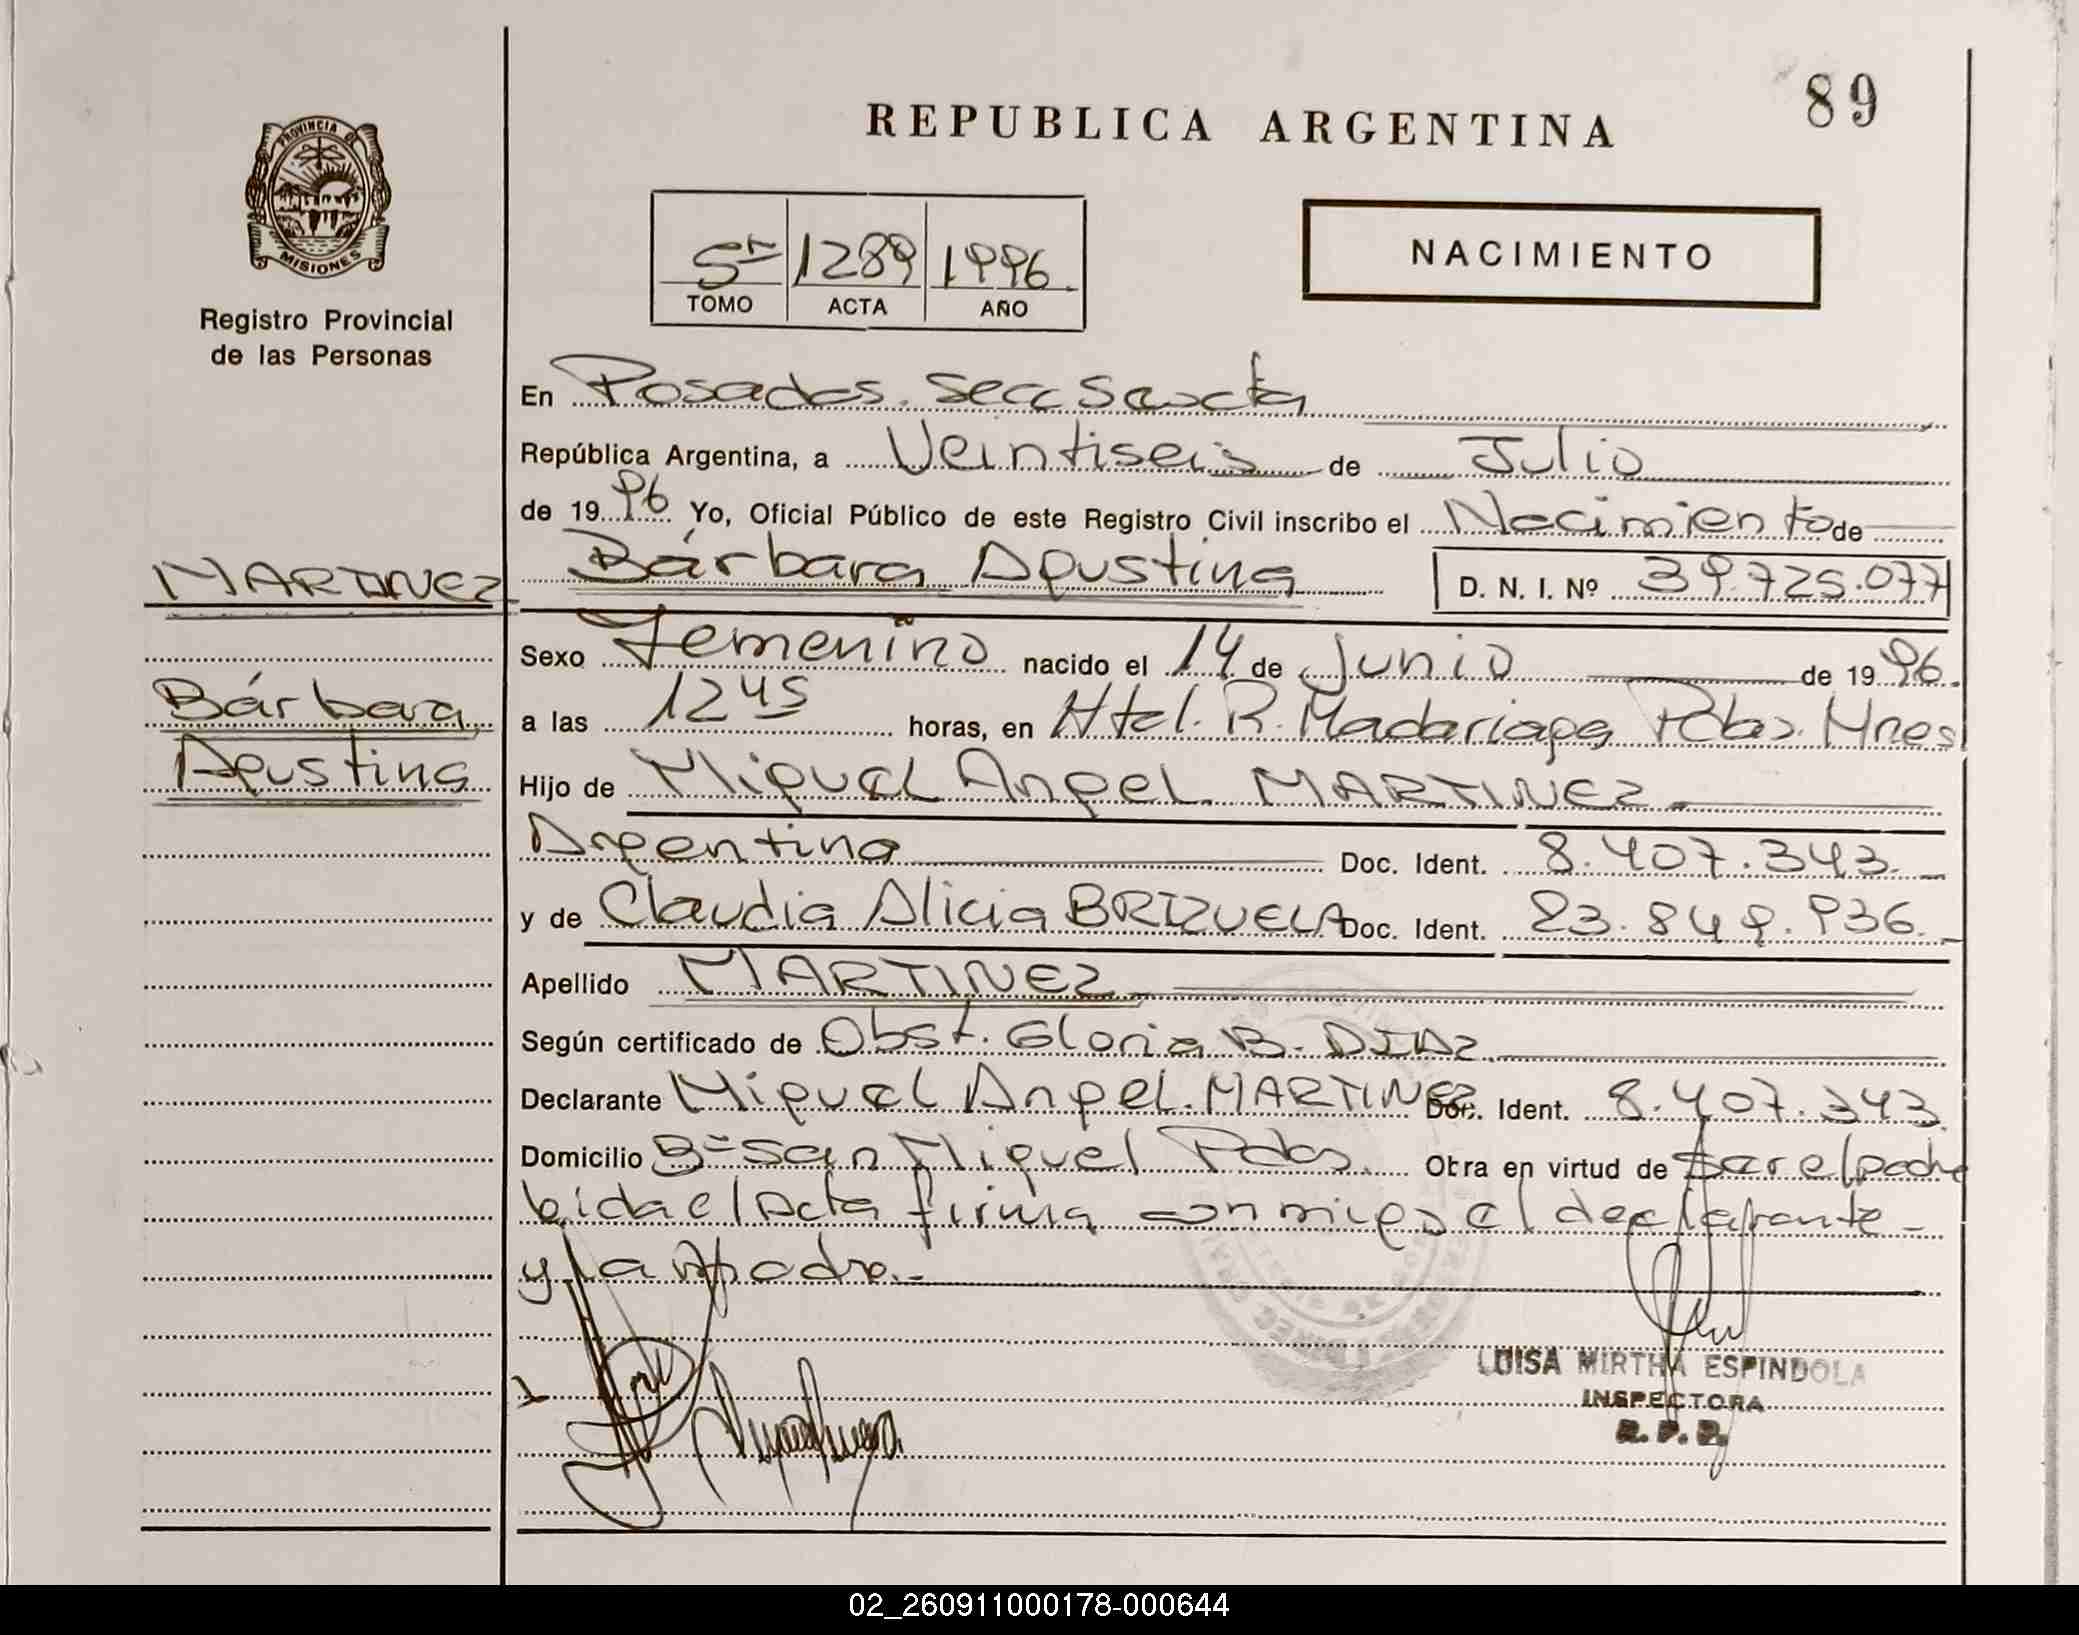 89
REPUBLICA ARGENTINA
PROVINCIA DE
MISIONES
Registro Provincial
de las Personas
NACIMIENTO
5º 1289 1996.
TOMO ACTA AÑO
En Posadas. Secc Sexta
República Argentina, a Veintiseis de Julio
de 1996 Yo, Oficial Público de este Registro Civil inscribo el Nacimiento de
MARTINEZ Bárbara Agustina D. N. I. Nº 39.725.077
Sexo Femenino nacido el 14 de Junio de 1996.
Bárbara a las 12 45 horas, en Htal. R. Madariaga Pdas. Mnes
Agustina Hijo de Miguel Angel MARTINEZ
Argentina Doc. Ident. 8.407.343.
y de Claudia Alicia BRIZUELA Doc. Ident. 23.849.936.
Apellido MARTINEZ
Según certificado de Obst. Gloria B. DIAZ
Declarante Miguel Angel. MARTINEZ Doc. Ident. 8.407.343.
Domicilio Bº San Miguel Pdas. Obra en virtud de ser el padre
leida el Acta firma conmigo el declarante
y la Madre.
LUISA MIRTHA ESPINDOLA
INSPECTORA
R. P. P.
02_260911000178-000644